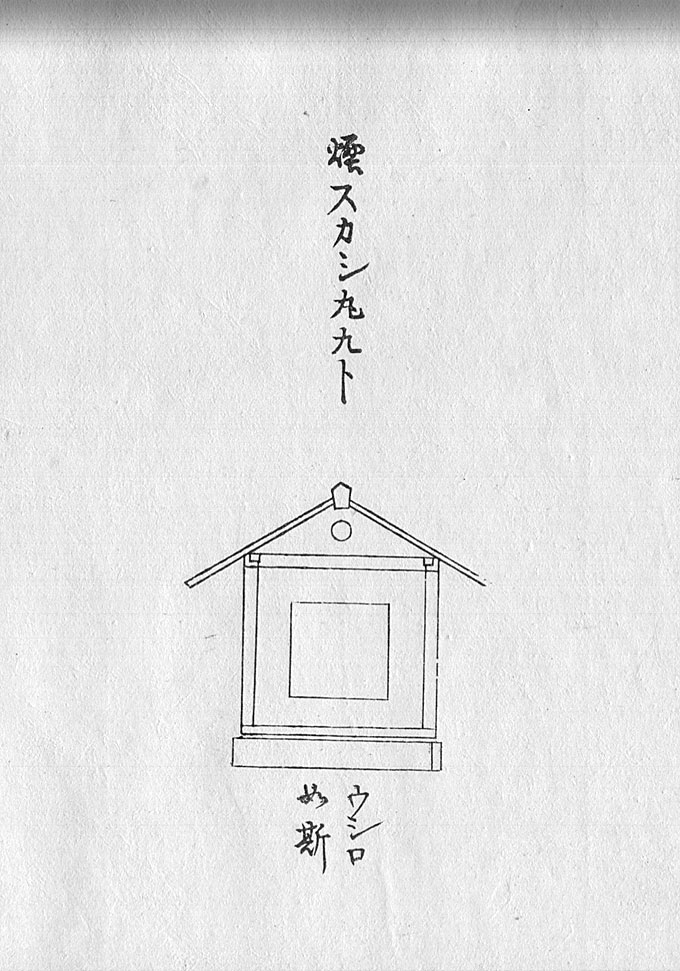 煙スカシ丸九ト
ウシロ
如斯